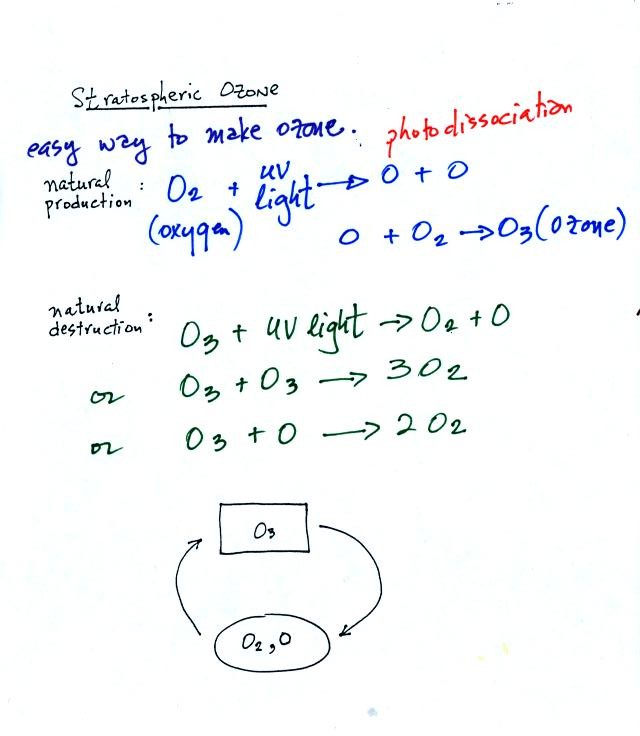 Stratospheric Ozone
easy way to make ozone. photodissociation
natural production : O₂ + UV light → O + O
(oxygen) O + O₂ → O₃ (Ozone)
natural destruction : O₃ + UV light → O₂ + O
or O₃ + O₃ → 3O₂
or O₃ + O → 2O₂
O₃
O₂, O